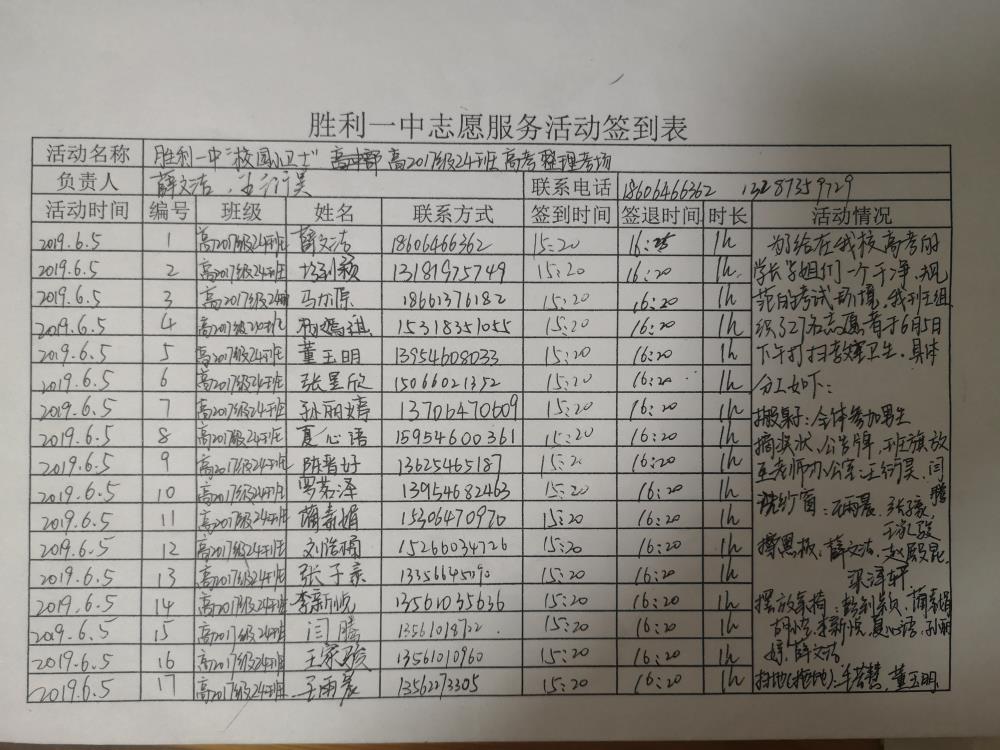 胜利一中志愿服务活动签到表
活动名称 胜利一中"校园小卫士" 高2017级24班高考整理考场
负责人 薛文洁、王衍昊 联系电话 18606466362
活动时间 编号 班级 姓名 联系方式 签到时间 签退时间 时长 活动情况
2019.6.5 1 高2017级24班 薛文洁 18606466362 15:20 1h
2019.6.5 2 高2017级24班 13181975749 15:20 16:20 1h
2019.6.5 3 高2017级24班 18661376182 15:20 16:20 1h
2019.6.5 4 高2017级24班 15318351055 15:20 16:20 1h
2019.6.5 5 高2017级24班 董玉明 13954608033 15:20 16:20 1h
2019.6.5 6 高2017级24班 张昱欣 15066021352 15:20 16:20 1h
2019.6.5 7 高2017级24班 孙丽婷 13706470609 15:20 16:20 1h
2019.6.5 8 高2017级24班 夏心语 15954600361 15:20 16:20 1h
2019.6.5 9 高2017级24班 陈晋好 13625465187 15:20 16:20 1h
2019.6.5 10 高2017级24班 罗茗泽 13954682463 15:20 16:20 1h
2019.6.5 11 高2017级24班 15306470970 15:20 16:20 1h
2019.6.5 12 高2017级24班 15266034726 15:20 16:20 1h
2019.6.5 13 高2017级24班 张子豪 13356645090 15:20 16:20 1h
2019.6.5 14 高2017级24班 李新悦 13561035636 15:20 16:20 1h
2019.6.5 15 高2017级24班 闫腾 13561018722 15:20 16:20 1h
2019.6.5 16 高2017级24班 王家骏 13561010960 15:20 16:20 1h
2019.6.5 17 高2017级24班 王雨晨 13562073305 15:20 16:20 1h
为了给在我校高考的
学长学姐们一个干净、规
范的考试环境,我班组
织了27名志愿者于6月5日
下午打扫教室卫生,具体
分工如下:
搬桌子:全体参加男生
摘奖状、公告牌,班旗放
至老师办公室:王衍昊、闫腾
洗纱窗:王雨晨、张子豪、王家骏
擦黑板:薛文洁、赵殿昆、
梁泽轩
李新悦、夏心语、孙丽
婷、薛文洁
扫地(拖地): 董玉明、